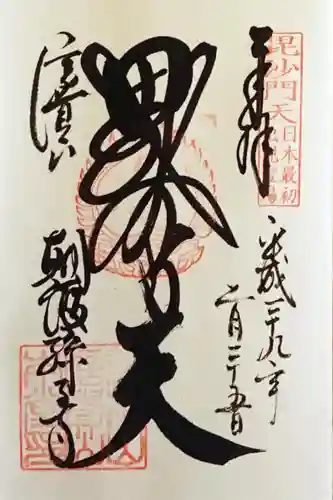 奉拝
毘沙門天
日本最初
出現霊場
平成二十九年
二月二十五日
毘沙門天
信貴山
朝護孫子寺